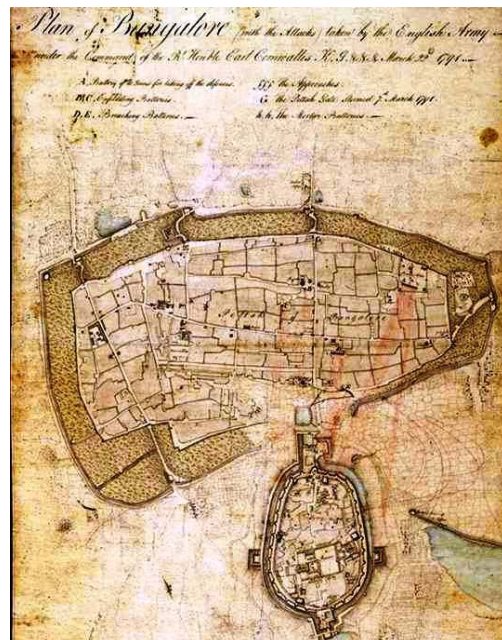 Plan of Bangalore (with the Attacks) taken by the English Army
under the Command of the Rt. Honble Earl Cornwallis K.G. &&& March 22d 1791.
A. Battery of Guns for taking off the defences.
B.C. Enfilading Batteries
D.E. Breaching Batteries.
the Approaches
G. the Pettah Gate Stormed 7th March 1791.
h.h. the Mortar Batteries
Pettah of Bangalore